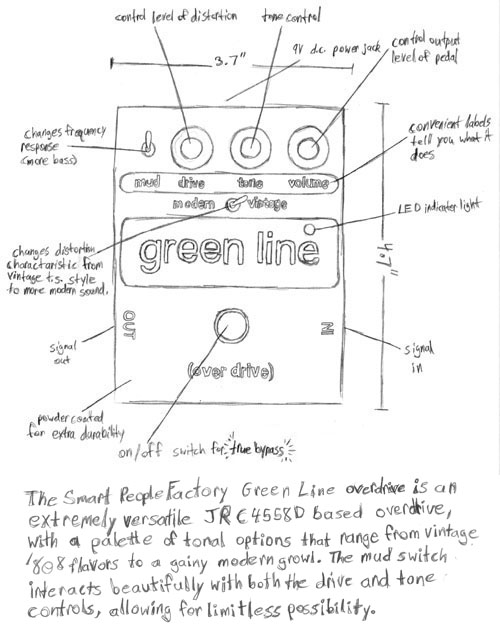 control level of distortion
tone control
9V d.c. power jack
control output
level of pedal
3.7"
changes frequency
response
(more bass)
convenient labels
tell you what it
does
mud drive tone volume
modern vintage
LED indicater light
green line
4.7"
changes distortion
charactaristic from
vintage t.s. style
to more modern sound.
OUT
IN
signal
out
signal
in
(over drive)
powder coated
for extra durability
on/off switch for true bypass
The Smart People Factory Green Line overdrive is an
extremely versatile JRC4558D based overdrive,
with a palette of tonal options that range from vintage
'808 flavors to a gainy modern growl. The mud switch
interacts beautifully with both the drive and tone
controls, allowing for limitless possibility.